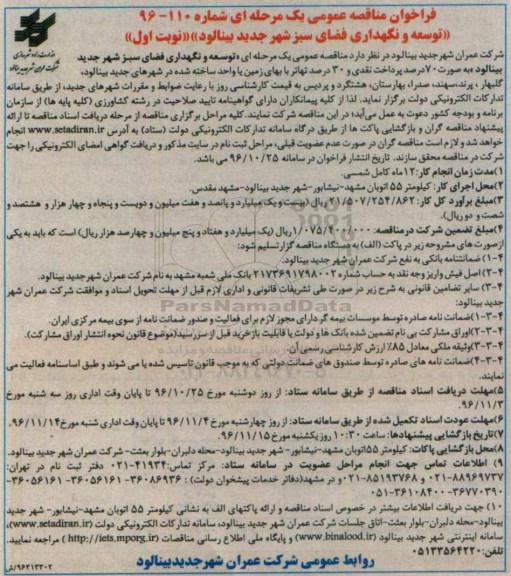 فراخوان مناقصه عمومی یک مرحله ای شماره ۱۱۰-۹۶
«توسعه و نگهداری فضای سبز شهر جدید بینالود»«نوبت اول»
وزارت راه و شهرسازی
شرکت عمران شهر جدید بینالود
شرکت عمران شهر جدید بینالود در نظر دارد مناقصه عمومی یک مرحله ای «توسعه و نگهداری فضای سبز شهر جدید
بینالود »به صورت ۷۰درصد پرداخت نقدی و ۳۰ درصد تهاتر با بهای زمین یا واحد ساخته شده در شهرهای جدید بینالود،
گلبهار ، پرند،سهند، صدرا، بهارستان، هشتگرد و پردیس به قیمت کارشناسی روز با رعایت ضوابط و مقررات شهرهای جدید، از طریق سامانه
تدارکات الکترونیکی دولت برگزار نماید. لذا از کلیه پیمانکاران دارای گواهینامه تایید صلاحیت در رشته کشاورزی (کلیه پایه ها) از سازمان
برنامه و بودجه کشور دعوت به عمل می‌آید؛ در این مناقصه شرکت نمایند. کلیه مراحل برگزاری مناقصه از مرحله دریافت اسناد مناقصه تا ارائه
پیشنهاد مناقصه گران و بازگشایی پاکت ها از طریق درگاه سامانه تدارکات الکترونیکی دولت (ستاد) به آدرس www.setadiran.ir انجام
خواهد شد و لازم است مناقصه گران در صورت عدم عضویت قبلی، مراحل ثبت نام در سایت مذکور و دریافت گواهی امضای الکترونیکی را جهت
شرکت در مناقصه محقق سازند. تاریخ انتشار فراخوان در سامانه ۹۶/۱۰/۲۵ می باشد.
۱)مدت زمان انجام کار: ۱۲ماه کامل شمسی.
۲)محل اجرای کار: کیلومتر ۵۵ اتوبان مشهد-نیشابور -شهر جدید بینالود-مشهد مقدس.
۳)مبلغ برآورد کل کار: ۲۱/۵۰۷/۲۵۴/۸۶۲ ریال (بیست و یک میلیارد و پانصد و هفت میلیون و دویست و پنجاه و چهار هزار و هشتصد و
شصت و دو ریال).
۴)مبلغ تضمین شرکت در مناقصه: ۱/۰۷۵/۴۰۰/۰۰۰ ریال (یک میلیارد و هفتاد و پنج میلیون و چهارصد هزار ریال) است که باید به یکی
از صورت های مشروحه زیر در پاکت (الف) به دستگاه مناقصه گزار تسلیم شود:
۱-۴) ضمانتنامه بانکی به نفع شرکت عمران شهر جدید بینالود.
۲-۴) اصل فیش واریز وجه نقد به حساب شماره ۲۱۷۳۶۹۱۷۹۸۰۰۲ بانک ملی شعبه مشهد به نام شرکت عمران شهر جدید بینالود.
۳-۴) سایر تضامین قانونی به شرح زیر در صورت طی تشریفات قانونی و اداری لازم قبل از مهلت تحویل اسناد و موافقت شرکت عمران شهر
جدید بینالود:
۱-۳-۴)ضمانت نامه صادره توسط موسسات بیمه گر دارای مجوز لازم برای فعالیت و صدور ضمانت نامه از سوی بیمه مرکزی ایران.
۲-۳-۴)اوراق مشارکت بی نام تضمین شده بانک ها و دولت با قابلیت بازخرید قبل از سررسید(موضوع قانون نحوه انتشار اوراق مشارکت).
۳-۳-۴)وثیقه ملکی معادل ۸۵٪ ارزش کارشناسی رسمی آن.
۴-۳-۴)ضمانت نامه های صادره توسط صندوق های ضمانت دولتی که به موجب قانون تاسیس شده یا می شوند و طبق اساسنامه فعالیت می
نمایند.
۵)مهلت دریافت اسناد مناقصه از طریق سامانه ستاد: از روز دوشنبه مورخ ۹۶/۱۰/۲۵ تا پایان وقت اداری روز سه شنبه مورخ
۹۶/۱۱/۳.
۶)مهلت عودت اسناد تکمیل شده از طریق سامانه ستاد: از روز چهارشنبه مورخ ۹۶/۱۱/۴ تا پایان وقت اداری شنبه مورخ ۹۶/۱۱/۱۴.
۷)تاریخ بازگشایی پیشنهادها: ساعت ۱۰:۳۰ روز یکشنبه مورخ ۹۶/۱۱/۱۵.
۸)محل بازگشایی پاکات: کیلومتر ۵۵اتوبان مشهد-نیشابور- شهر جدید بینالود-محله دلبران-بلوار بعثت- شرکت عمران شهر جدید بینالود.
۹) اطلاعات تماس جهت انجام مراحل عضویت در سامانه ستاد: مرکز تماس:۴۱۹۳۴-۰۲۱ دفتر ثبت نام در تهران:
۸۸۹۶۹۷۳۷-۰۲۱ و ۸۵۱۹۳۷۶۸-۰۲۱ و در مشهد(دفاتر خدمات پیشخوان دولت) :
۳۶۱۰۸۴۰۰-۰۵۱
۱۰) جهت دریافت اطلاعات بیشتر در خصوص اسناد مناقصه و ارائه پاکتهای الف به نشانی کیلومتر ۵۵ اتوبان مشهد-نیشابور- شهر جدید
بینالود-محله دلبران-بلوار بعثت-اتاق جلسات شرکت عمران شهر جدید بینالود، سامانه تدارکات الکترونیکی دولت (www.setadiran.ir)،
سامانه اینترنتی شهر جدید بینالود (www.binalood.ir) و پایگاه ملی اطلاع رسانی مناقصات (http://iets.mporg.ir) مراجعه نمایید.
تلفن: ۰۵۱۳۳۵۶۴۲۲۰
روابط عمومی شرکت عمران شهرجدیدبینالود
۹۶۲۱۳۳۰۲/ش
ParsNamadData